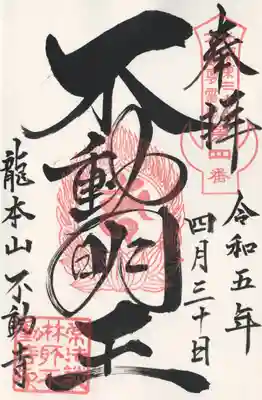 奉拝
令和五年
四月三十日
不動明王
龍本山不動寺